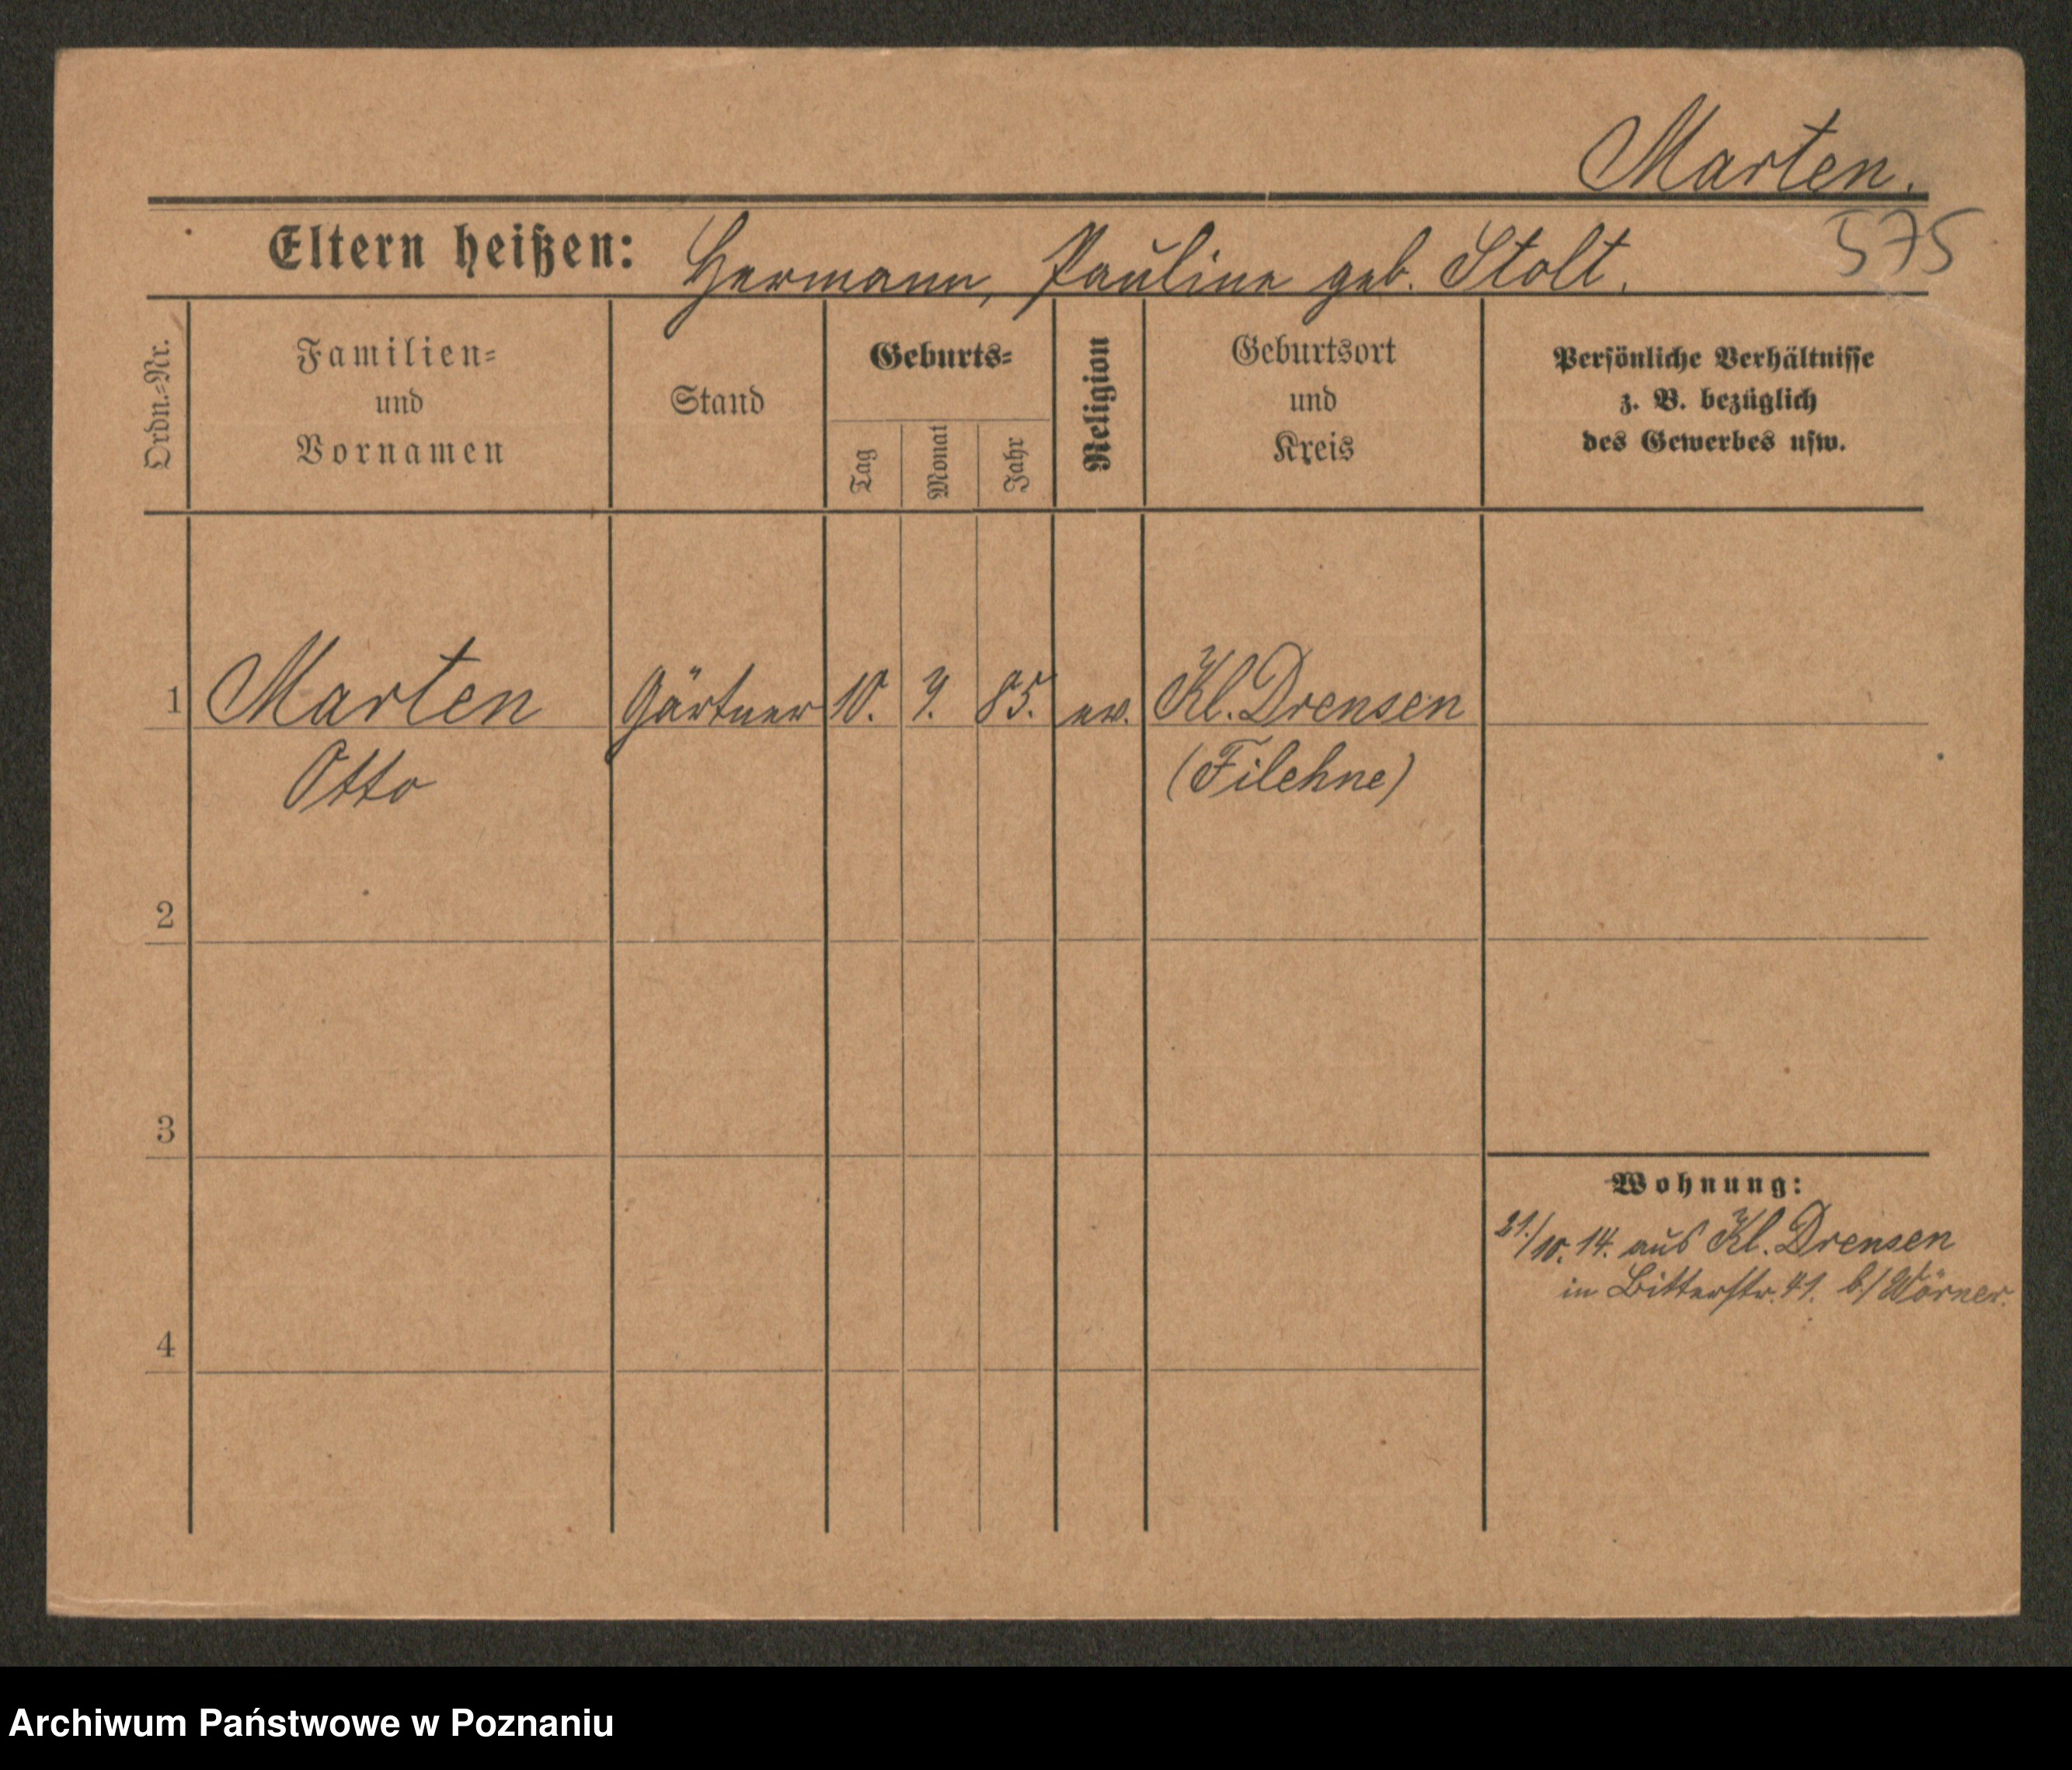 Marten.
Eltern heißen: Hermann, Pauline geb. Stolt.
575
Ordn.=Nr.
Familien=
und
Vornamen
Stand
Geburts=
Tag
Monat
Jahr
Religion
Geburtsort
und
Kreis
Persönliche Verhältnisse
z. B. bezüglich
des Gewerbes usw.
1 Marten Gärtner 10. 9. 85. ev. Kl. Drensen
Otto (Filehne)
2
3
Wohnung:
21./10. 14. aus Kl. Drensen
in Bitterstr. 41. b/ Wörner.
4
Archiwum Państwowe w Poznaniu